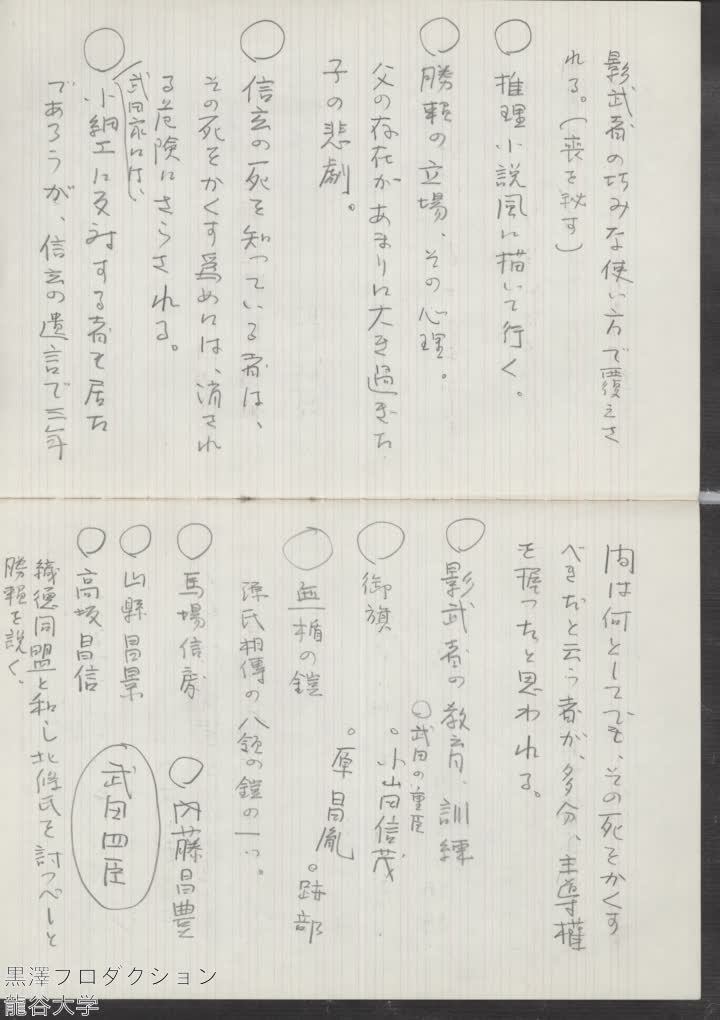 影武者の巧みな使い方で覆えさ
れる。(喪を秘す)
○推理小説風に描いて行く。
○勝頼の立場、その心理。
父の存在があまりに大き過ぎた
子の悲劇。
○信玄の死を知っている者は、
その死をかくす為めには、消され
る危険にさらされる。
(武田家には、
○小細工に反対する者も居た
であろうが、信玄の遺言で三年
間は何としてでも、その死をかくす
べきだと云う者が、多分、主導権
を握ったと思われる。
○影武者の教育、訓練
○武田の重臣
○御旗
。小山田信茂
。原昌胤
。跡部
○無楯の鎧
源氏相傳の八領の鎧の一つ。
○馬場信房
○内藤昌豊
○山縣昌景
武田四臣
○高坂昌信
織徳同盟と和し北條氏を討つべしと
勝頼を説く。
黒澤プロダクション
龍谷大学